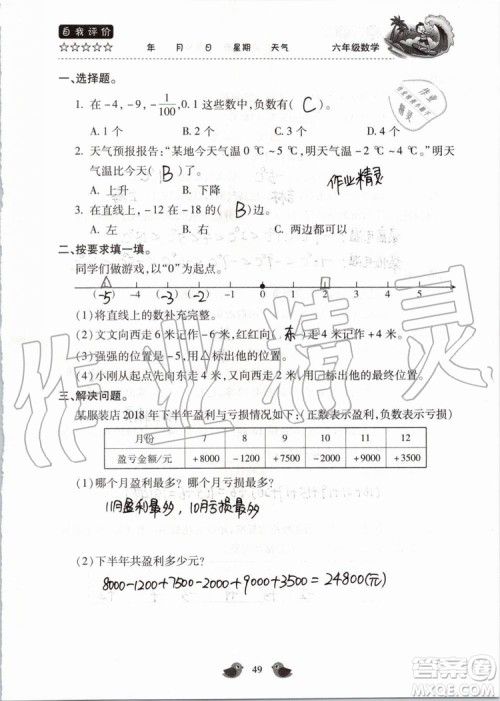 自我评价
☆☆☆☆☆ 年 月 日 星期 天气 六年级数学
一、选择题。
1. 在-4,-9,-1/100,0.1 这些数中,负数有( C )。
A. 1 个 B. 2 个 C. 3 个 D. 4 个
2. 天气预报报告:“某地今天气温 0 ℃~5 ℃,明天气温-2 ℃~4 ℃。”明天气温比今天( B )了。
A. 上升 B. 下降
作业精灵
3. 在直线上,-12 在-18 的( B )边。
A. 左 B. 右 C. 两边都可以
二、按要求填一填。
同学们做游戏,以“0”为起点。
(-5) -4 (-3) (-2) -1 0 1 2 3 4 5
(1)将直线上的数补充完整。
(2)文文向西走 6 米记作-6 米,红红向( 东 )走 4 米记作+4 米。
(3)强强的位置是-5,用△标出他的位置。
(4)小刚从起点先向东走 4 米,又向西走 2 米,用□标出他的最终位置。
三、解决问题。
某服装店 2018 年下半年盈利与亏损情况如下:(正数表示盈利,负数表示亏损)
月份 7 8 9 10 11 12
盈亏金额/元 +8000 -1200 +7500 -2000 +9000 +3500
(1)哪个月盈利最多?哪个月亏损最多?
11月盈利最多,10月亏损最多
(2)下半年共盈利多少元?
8000-1200+7500-2000+9000+3500=24800(元)
49
作业精灵
答案圈
MXQE.COM